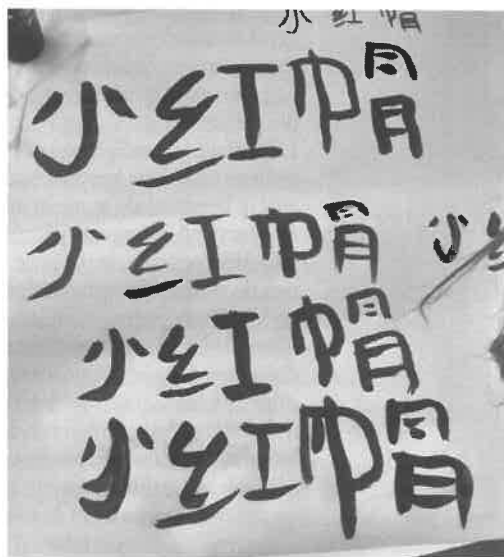 小红帽
小红帽
小红帽
小红帽
小红帽